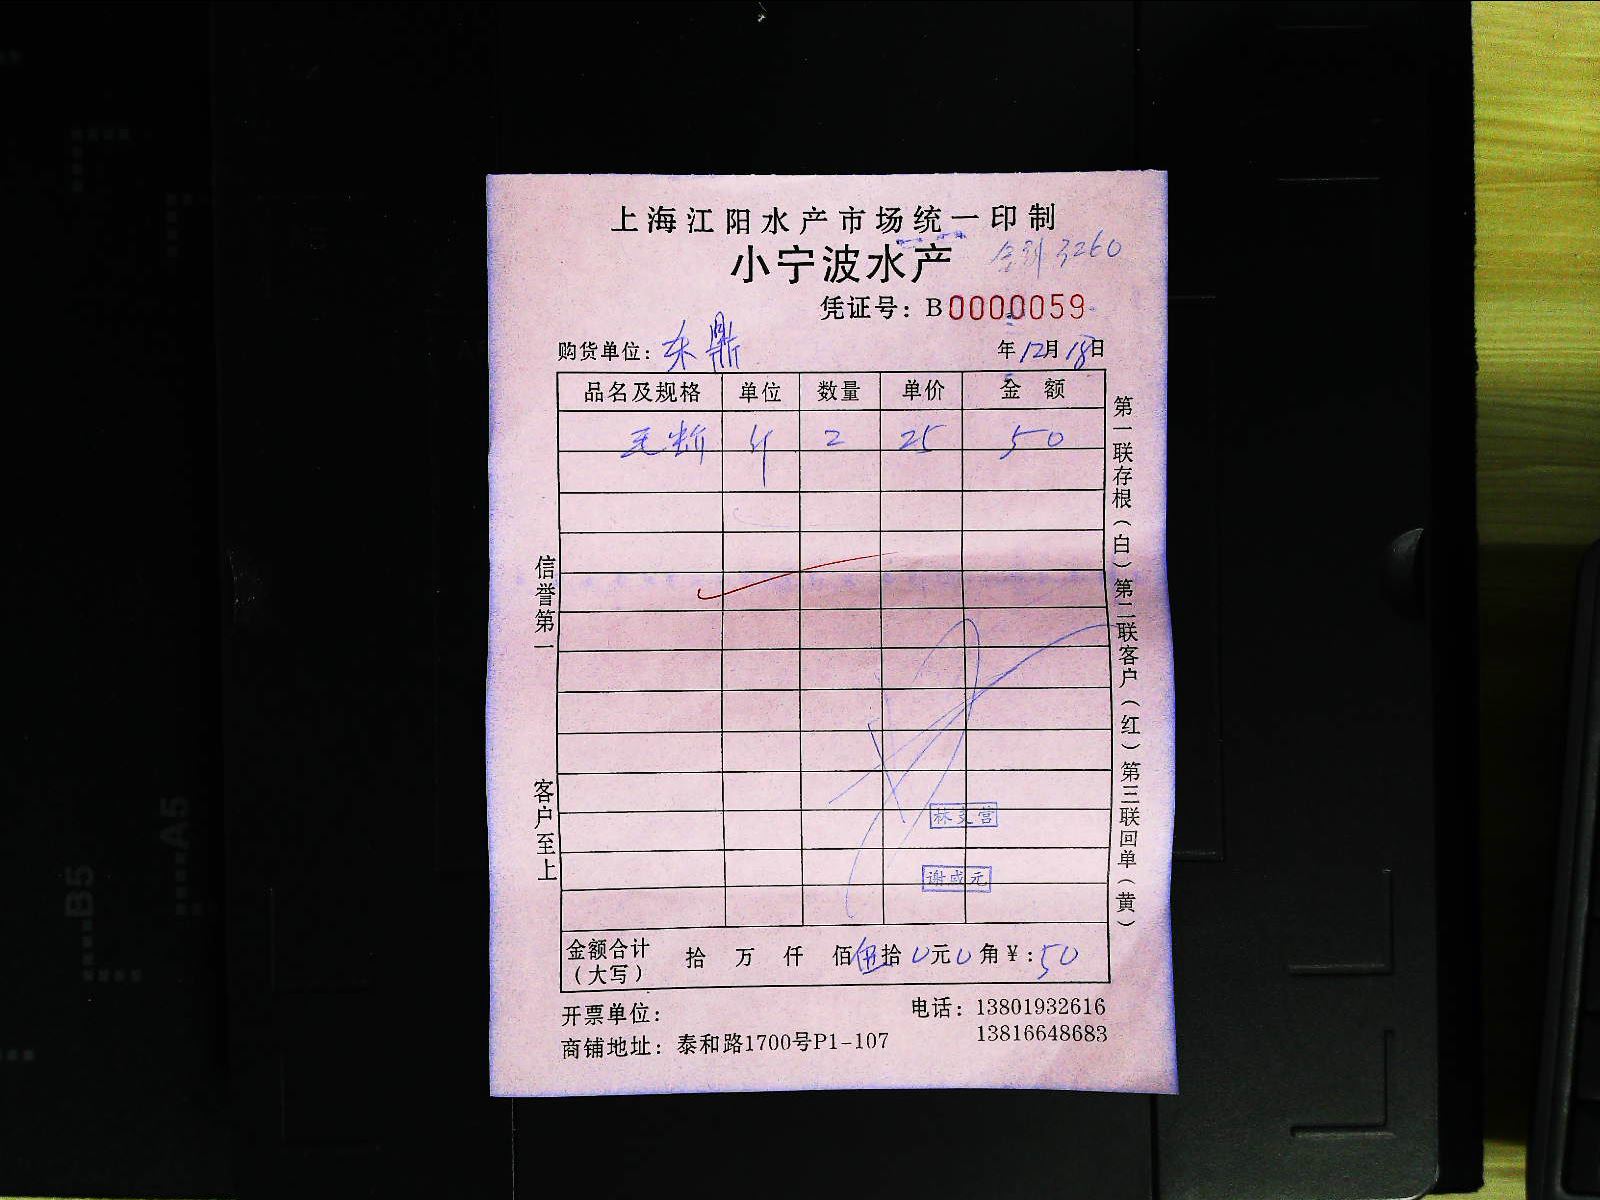 上海江阳水产市场统一印制
小宁波水产
3260
凭证号：B0000059
购货单位：东鼎
年12月18日
品名及规格 单位 数量 单价 金 额
毛 斤 2 25 50
信誉第一
客户至上
第一联存根（白）第二联客户（红）第三联回单（黄）
林 营
谢成元
金额合计（大写） 拾 万 仟 佰伍拾0元0角￥:50
开票单位：
电话：13801932616
13816648683
商铺地址：泰和路1700号P1-107
B5
A5